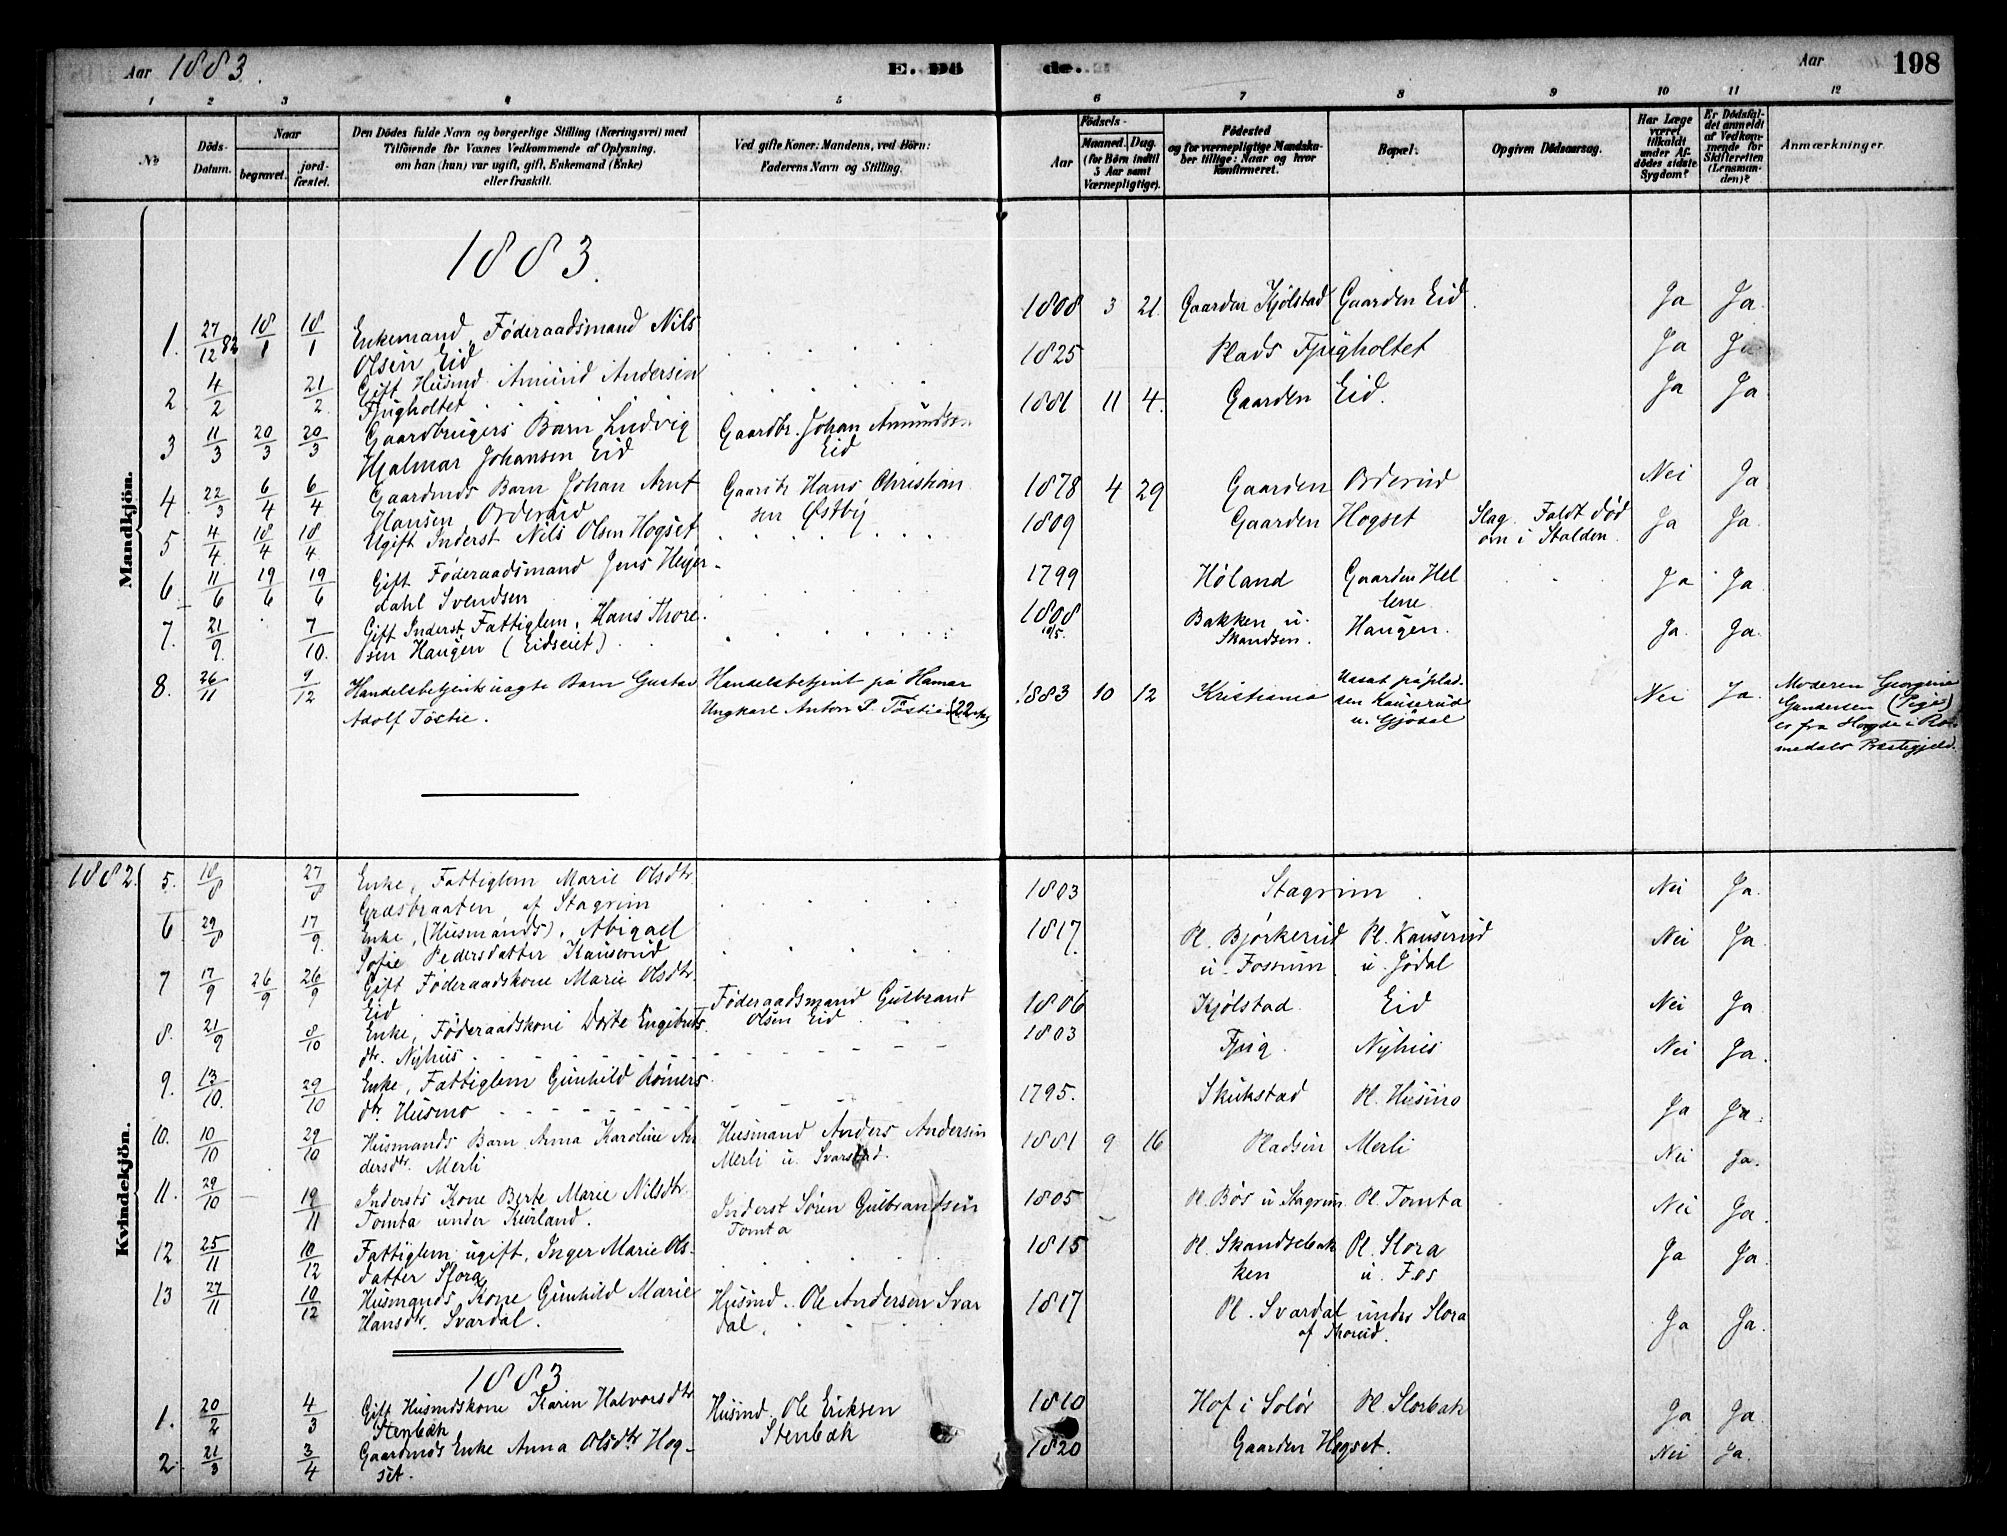 Aar 1883.
E. Dö
de.
Aar
198
1 2 3 4 5 6 7 8 9 10 11 12
No
Döds-Datum.
Naar
begravet.
jord-fæstet.
Den Dödes fulde Navn og borgerlige Stilling (Næringsvei) med
Tilföiende for Voxnes Vedkommende af Oplysning,
om han (hun) var ugift, gift, Enkemand (Enke)
eller fraskilt.
Ved gifte Koner: Mandens, ved Börn:
Faderens Navn og Stilling.
Födsels-
Aar
Maaned. Dag.
(for Börn indtil
5 Aar samt
Værnepligtige).
Födested
og for værnepligtige Mandska-
ber tillige: Naar og hvor
konfirmeret.
Bopæl.
Opgiven Dödsaarsag.
Har Læge
været
tilkaldt
under Af-
dödes sidste
Sygdom?
Er Dödsfal-
det anmeldt
af Vedkom-
mende for
Skifteretten
(Lensman-
den)?
Anmærkninger.
Mandkjön.
1883.
1. 27/12 82 18/1 18/1 Enkemand, Føderaadsmand Nils
Olsen Eid
1808 3 21. Gaarden Kjølstad Gaarden Eid. Ja Ja.
2 4/2 21/2 Gift Husmd. Amund Andersen
Fjugholtet
1825 Plads Fjugholtet Ja Ja
3 11/3 20/3 20/3 Gaardbrugers Barn Ludvig
Hjalmar Johansen Eid
Gaardbr. Johan Amundsen
Eid
1881 11 4. Gaarden Eid. Ja Ja
4 22/3 6/4 6/4 Gaardmds Barn Johan Arnt
Hansen Orderud
Gaardbr Hans Christian
sen Østby
1878 4 29 Gaarden Orderud Nei Ja
5 4/4 18/4 18/4 Ugift Inderst Nils Olsen Hogset
1809 Gaarden Hogset Slag. Faldt død
om i Stalden. Ja Ja.
6. 11/6 19/6 19/6 Gift Føderaadsmand Jens Heyer-
dahl Svendsen
1799 Høland Gaarden Hel
lene Ja Ja
7. 21/9 7/10. Gift Inderst, Fattiglem, Hans Thore
sen Haugen (Eidseiet)
1808
10/5. Bakken u.
Skandsen. Haugen. Ja. Ja.
8. 26/11 9/12 Handelsbetjents uægte Barn Gustav
Adolf Töstie.
Handelsbetjent på Hamar
Ungkarl Anton P. Töstie
1883 10 12 Kristiania Uasat påplad-
sen Kauserud
u. Gjödal Nei Ja.
Moderen Georgine
Gundersen (Pige)
er fra i Ro-
medals Prestegjeld.
Kvindekjön.
1882. 5. 18/8 27/8 Enke, Fattiglem Marie Olsdtr.
Græsbraaten af Stagrim
1803 Stagrim Nei Ja.
6 29/8 17/9. Enke, (Husmands), Abigael
Sofie Pedersdatter Kauserud
1817. Pl. Bjørkerud
u. Fossum Pl. Kauserud
u. Jödal Nei Ja.
7 17/9 26/9 26/9 Gift Føderaadskone Marie Olsdtr.
Eid
Føderaadsmand Gulbrand
Olsen Eid
1806 Kjølstad. Eid Nei Ja
8. 21/9 8/10 Enke, Føderaadskone Dorte Engebrets
dtr. Nyhus
1803 Fjug. Nyhus Nei Ja.
9. 13/10. 29/10 Enke, Fattiglem Gunhild Römers
dtr Husmo
1795. Skukstad Pl. Husmo Ja Ja.
10. 10/10 29/10 Husmands Barn Anna Karoline An
dersdtr. Merli
Husmand Anders Andersen
Merli u. Svarstad.
1881 9 16 Pladsen Merli Nei Ja.
11. 29/10 19/11 Indersts Kone Berte Marie Nilsdtr.
Tomta under Kurland.
Inderst Sören Gulbrandsen
Tomta
1805 Pl. Bös u Stagrim Pl. Tomta Nei Ja.
12 25/11 10/12 Fattiglem, ugift, Inger Marie Ols-
datter Slora
1815 Pl. Skandsebak
ken Pl. Slora
u. Fos Ja Ja.
13 27/11 10/12 Husmands Kone Gunhild Marie
Hansdtr. Svardal.
Husmd. Ole Andersen Svar
dal.
1817 Pl. Svardal under Slora
af Thorud. Ja Ja.
1883
1. 20/2 4/3 Gift Husmdskone Karin Halvorsdtr
Stenbæk
Husmd. Ole Eriksen
Stenbæk
1810 Hof i Solör Pl. Slorbæk Ja Ja.
2. 21/3 3/4 Gaardmds Enke Anna Olsdtr Hog-
set.
1820 Gaarden Hogset. Nei Ja.